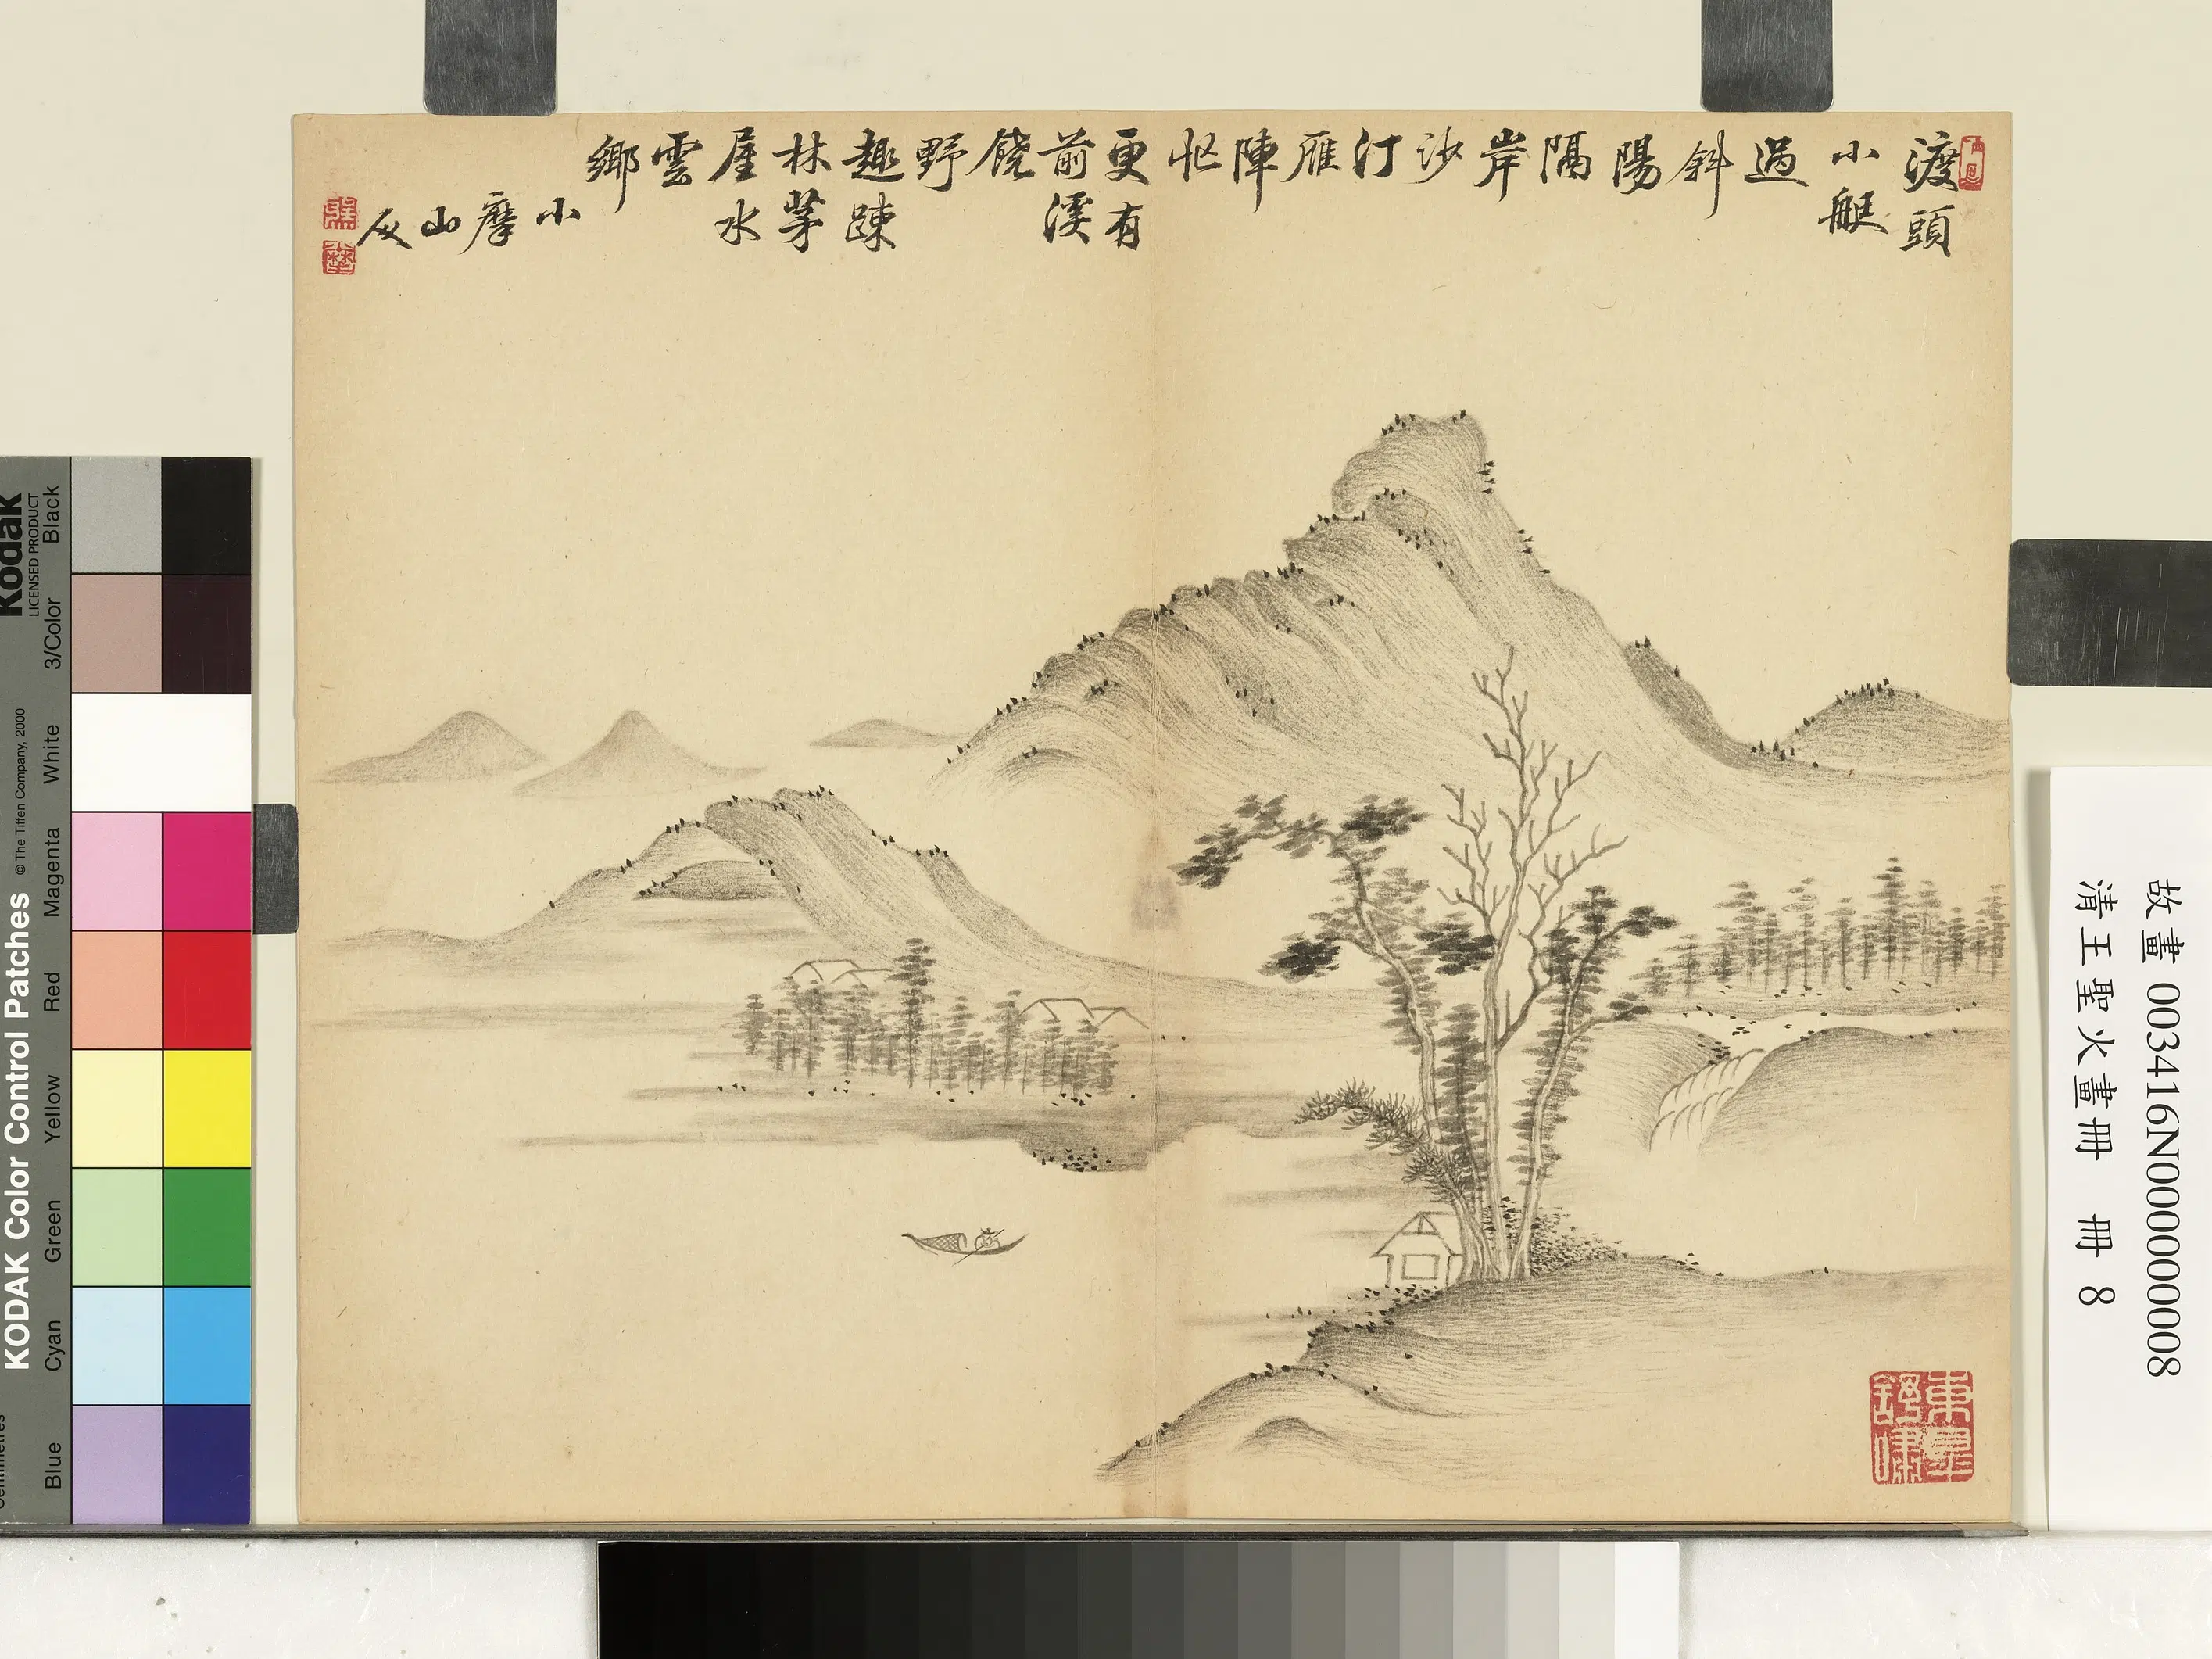 渡頭
小艇
過
斜
陽
隔
岸
沙
汀
雁
陣
忙
更有
前溪
饒
野
趣踈
林茅
屋水
雲
鄉
小
摩
山
東皋
舒嘯
故畫 003416N000000008
清王聖火畫冊 冊 8
Kodak
LICENSED PRODUCT
KODAK Color Control Patches
© The Tiffen Company, 2000
Blue Cyan Green Yellow Red Magenta White 3/Color Black